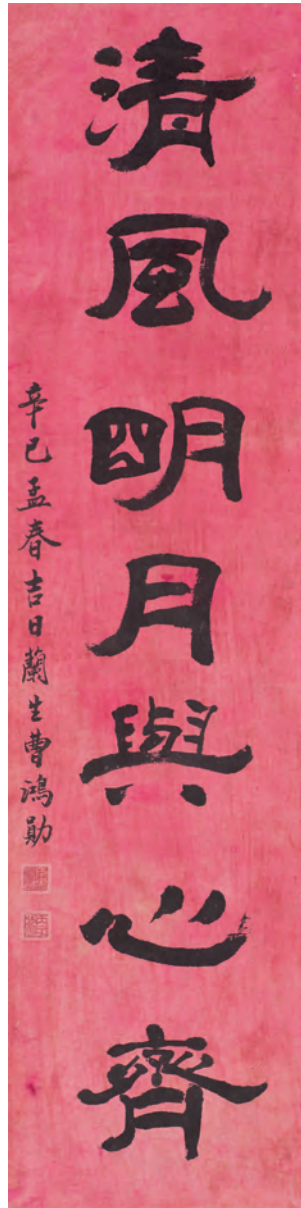 清風明月與心齊
辛巳孟春吉日蘭生曹鴻勛